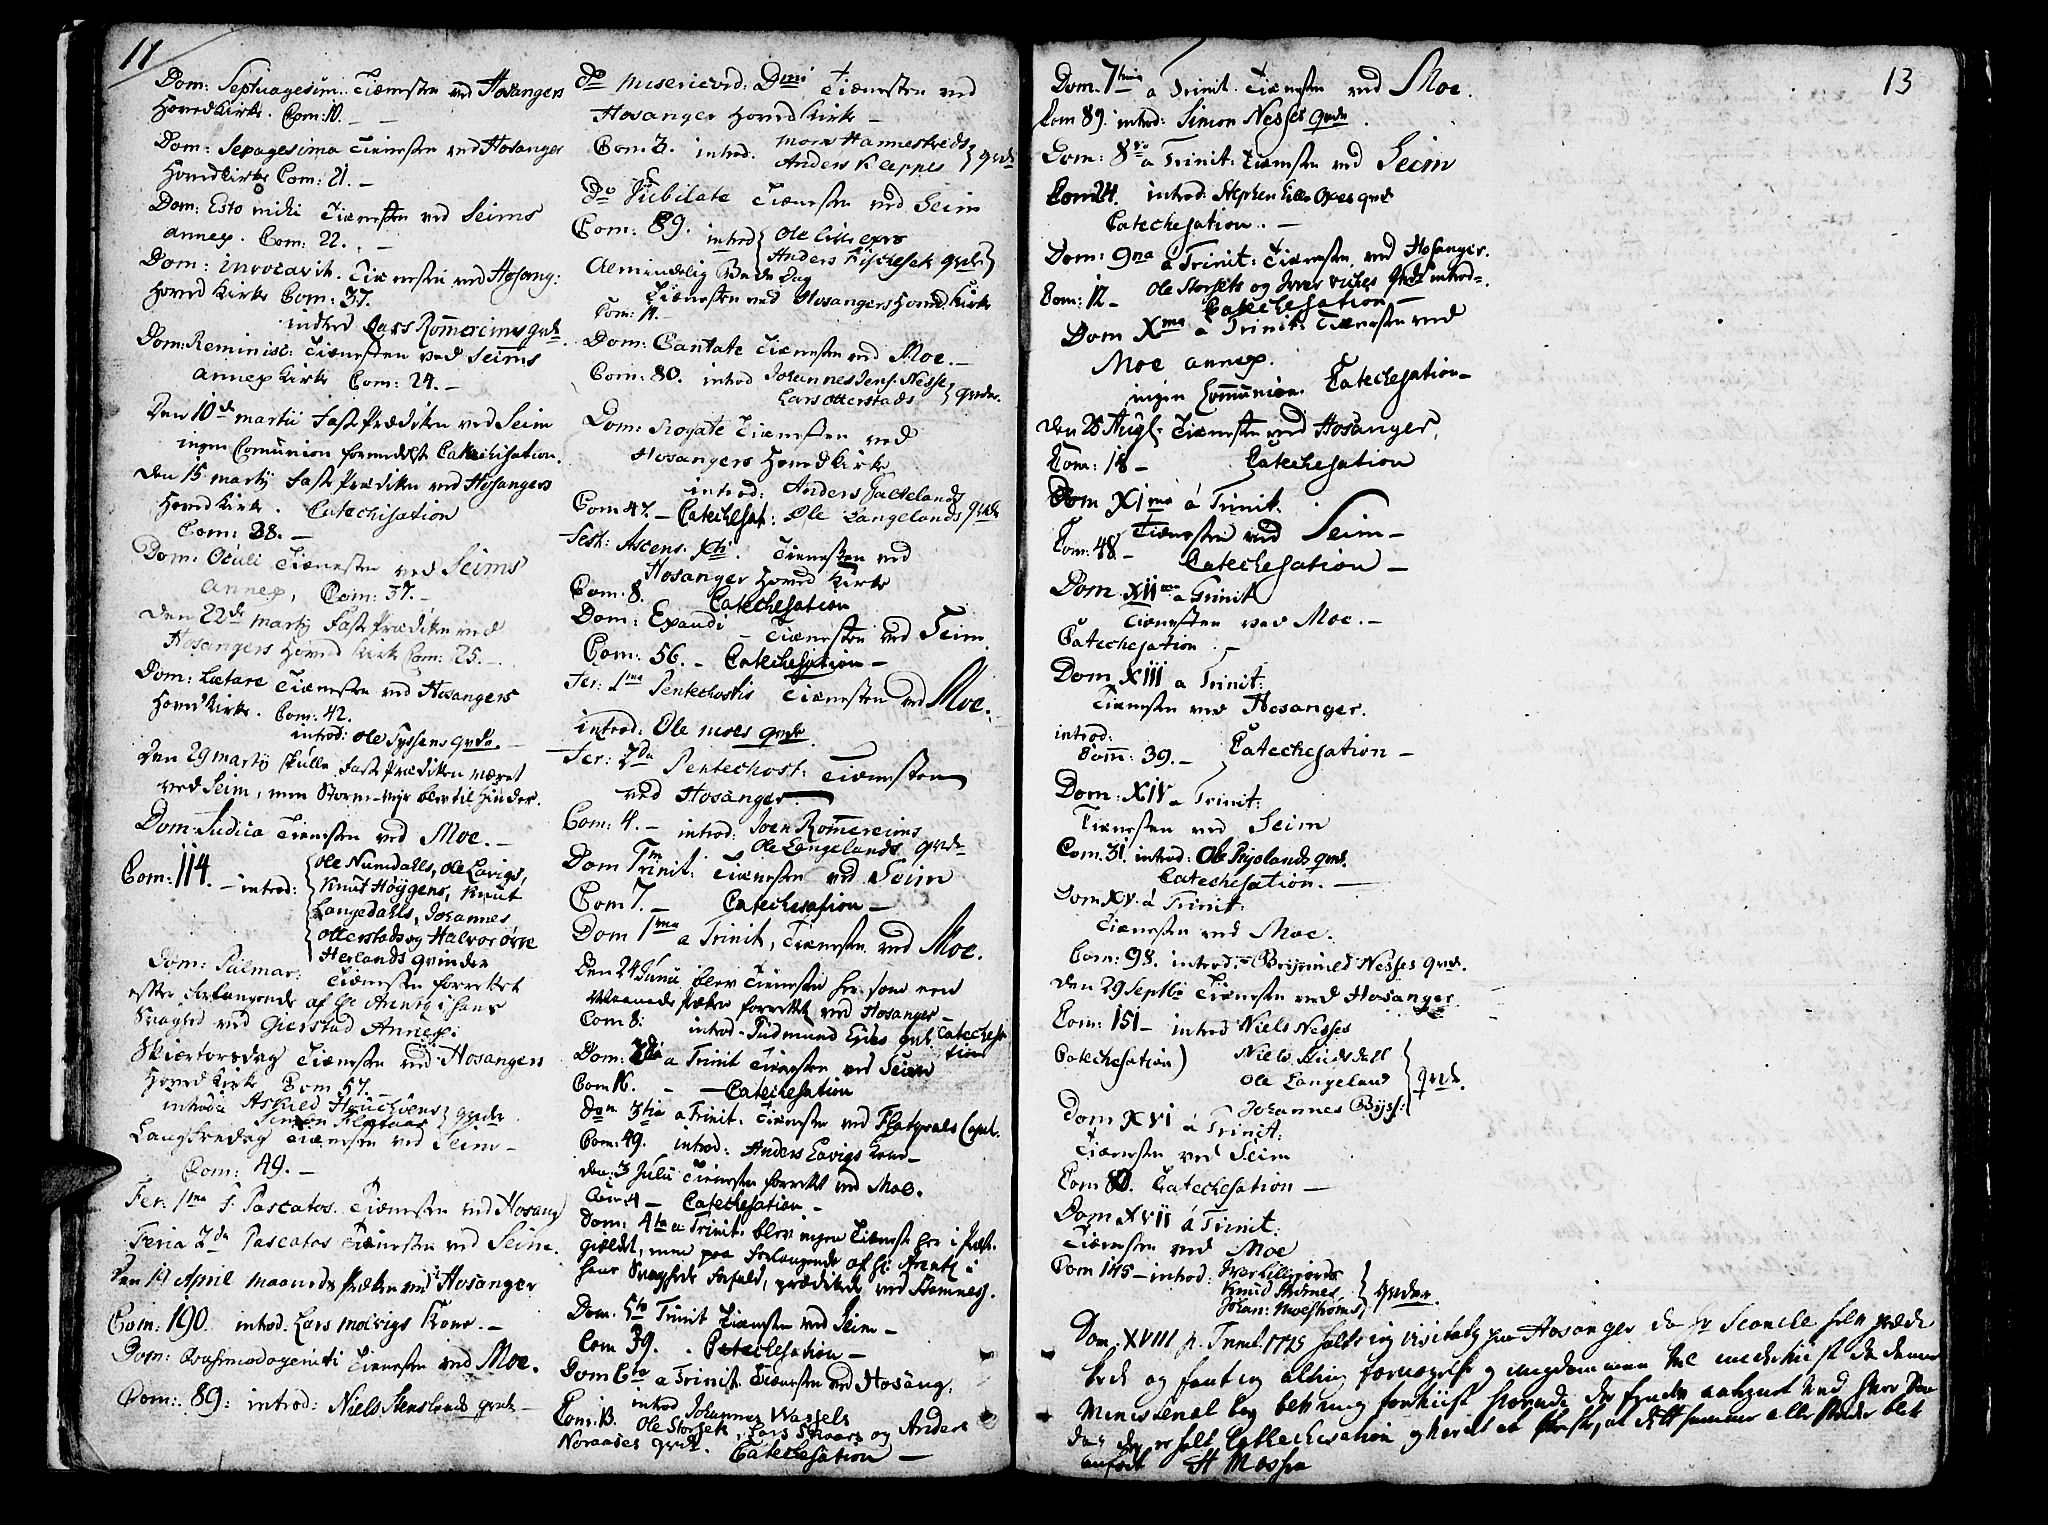 11
Dom: Septuagesim. Tienesten ved Hosangers
Hoved Kirke. Com: 10. —
Dom: Sexagesima Tienesten ved Hosanger
Hoved Kirke Com: 21. —
Dom: Esto mihi Tienesten ved Seims
annex. Com: 22. —
Dom: invocavit. Tienesten ved Hosang:
Hoved Kirke Com: 37.
introd Lars Romereims qvde.
Dom: Reminisc: Tienesten ved Seims
annex Kirke Com: 24. —
Den 10de martii Faste Prædiken ved Seim
ingen Comunion formedelst Catechisation.
Den 15 martij Faste Prædiken ved Hosangers
Hoved Kirke. Catechisation
Com: 38. —
Dom: Oculi Tienesten ved Seims
annex, Com: 37. —
Den 22de martij Faste Prædiken ved
Hosangers Hoved Kirke Com: 25. —
Dom: Lætare Tienesten ved Hosangers
Hoved Kirke. Com: 42.
introd: Ole Tyssens qvde. —
Den 29 martij skulle Faste Prædiken været
ved Seim, men Storm-veyr blev til Hinder.
Dom: Judica Tienesten ved Moe. —
Com: 114. — introd: Ole Numdalls, Ole Lavigs,
Knut Höygens, Knut
Langedalls, Johannes
Otterstads og Halvor øvre
Herlands qvinder
Dom: Palmar: Tienesten forrettet
efter forlangende af Hr Arentz i hans
Svaghed ved Gierstad Annex:
Skiærtorsdag Tienesten ved Hosangers
Hoved Kirke Com 57. —
introd: Askild
Simon qvdr.
Langfredag Tienesten ved Seim —
Com: 49. —
Fer: 1ma Pascatos. Tienesten ved Hosang
Feria 2da Pascatos Tienesten ved Seim.
Den 19 April maaneds Præken ved Hosanger
Com: 190. introd. Lars Molvigs Kone. —
Dom: Qvasimodogeniti Tienesten ved Moe.
Com: 89: introd: Niels Stenslands qvde —
Do Misericord: Dmi Tienesten ved
Hosanger Hoved Kirke —
Com: 3. introd. Mons Hannestveds
Anders Kleppes qvdr
Do Jubilate Tienesten ved Seim
Com: 89. introd Ole Lille
Anders qvdr
Almindelig Bede Dag
Tienesten ved Hosangers Hoved Kirke
Com: 11.
Dom: Cantate Tienesten ved Moe. —
Com: 80. introd Johannes Jens: Nesse
Lars Otterstads qvdr.
Dom: Rogate Tienesten ved
Hosangers Hoved Kirke
introd: Anders
Com: 47. — Catechesat: Ole Langelands qvdr
Fest: Ascens: Xti. Tienesten ved
Hosanger Hoved Kirke
Com: 8. Catechesation
Dom: Exaudi — Tienesten ved Seim.
Com: 56. — Catechesation —
Fer: 1ma Pentechostis Tienesten ved Moe.
introd: Ole Moes qvde.
Fer: 2da Pentechost: Tienesten
ved Hosanger
Com: 4. — introd: Joen Romereims
Ole Langelands qvdr
Dom Trinit: Tienesten ved Seim
Com 7. — Catechesation —
Dom 1ma a Trinit, Tienesten ved Moe.
Den 24 Junii blev Tienesten her som een
Maaneds Præken forrettet ved Hosanger —
Com 8: introd. Gudmund qvd. Cateche-
Dom: 2da a Trinit Tienesten ved Seim sation
Com 16. — — Catechesation
Dom 3tia a Trinit. Tienesten ved Flatqvals Capel.
Com: 49. introd: Anders Lavigs Kone —
den: 3 Julii Tienesten forrettet ved Moe.
Com: 4 — Catechesation. —
Dom: 4ta a Trinit: blev ingen Tieneste her i Præste-
gieldet, men paa forlangende af Hr Arentz i
hans Svagheds Forfald, prædikede ved Hamnes.
Dom. 5ta Trinit Tienesten ved Seim —
Com 39. . Catechesation —
Dom 6ta a Trinit. Tienesten ved Hosang.
introd Johannes Wassels
Com: 13. Ole Storset, Lars og Anders
Noraases qvdr. Catechesation —
13
Dom. 7tima a Trinit. Tienesten ved Moe.
Com 89. introd: Simon Nesses qvde.
Dom: 8va a Trinit: Tienesten ved Seim
Com 24. introd: Stephen Lille qvde
Catechesation. —
Dom: 9na a Trinit: Tienesten ved Hosanger.
Com: 12 — Ole Storsets og Iver qvdr introd.
Catechesation —
Dom Xma a Trinit: Tienesten ved
Moe annex.
ingen Communion. Catechesation —
den 25 Aug: Tienesten ved Hosanger,
Com: 18 — Catechesation
Dom XIma á Trinit.
Tienesten ved Seim —
Com: 48 — Catechesation —
Dom XIIma a Trinit
Tienesten ved Moe. —
Catechesation. —
Dom XIII a Trinit:
Tienesten ved Hosanger.
introd:
Com: 39. — Catechesation —
Dom: XIV a Trinit:
Tienesten ved Seim
Com. 31. introd: Ole qvde.
Catechesation. —
Dom XV. á Trinit:
Tienesten ved Moe.
Com: 98. introd. Brynnild Nesses qvde.
den 29 Septbr Tienesten ved Hosanger
Com: 151 — introd Niels Nesses
Catechesation) Niels
Ole Langeland qvdr.
Johannes
Dom XVI á Trinit:
Tienesten ved Seim
Com 80. Catechesation —
Dom XVII á Trinit:
Tienesten ved Moe
Com 145 — introd: Iver
Knud qvder.
Johan:
Dom XVIII p. Trinit. 1725 holdt ieg visitatz paa Hosanger da Hr selv præde-
kede og fant ieg alting